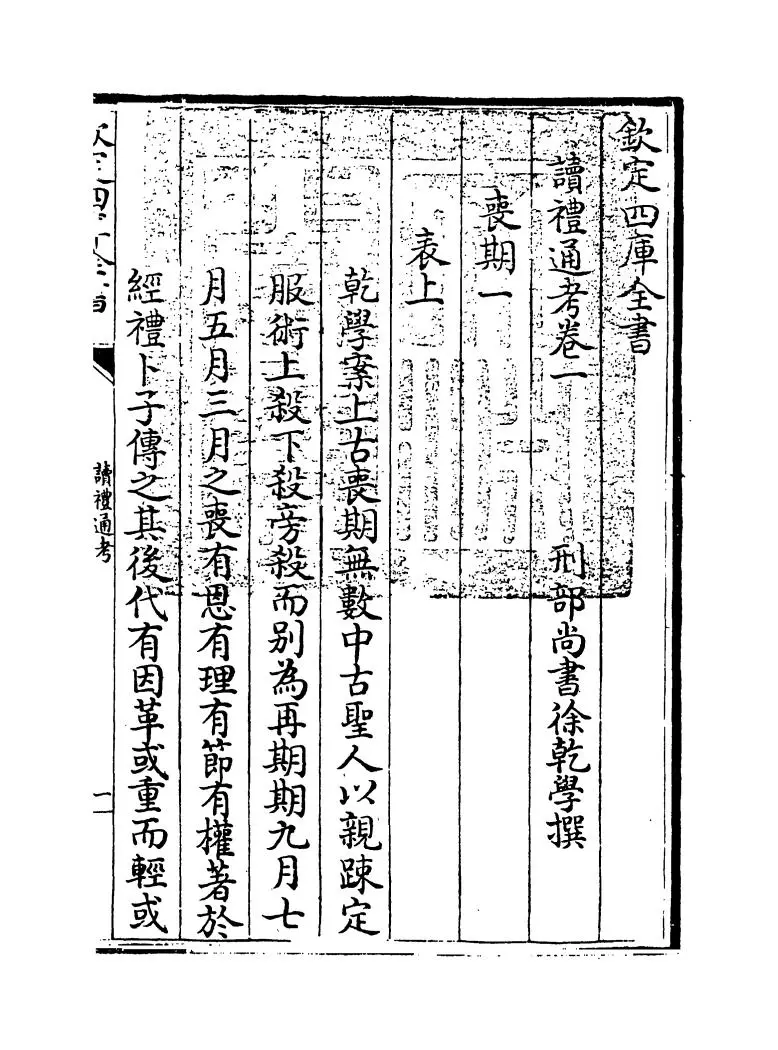 欽定四庫全書
讀禮通考卷一
刑部尚書徐乾學撰
喪期一
表上
乾學案上古喪期無數中古聖人以親踈定
服術上殺下殺旁殺而别為再期期九月七
月五月三月之喪有恩有理有節有權著於
經禮卜子傳之其後代有因革或重而輕或
讀禮通考
一